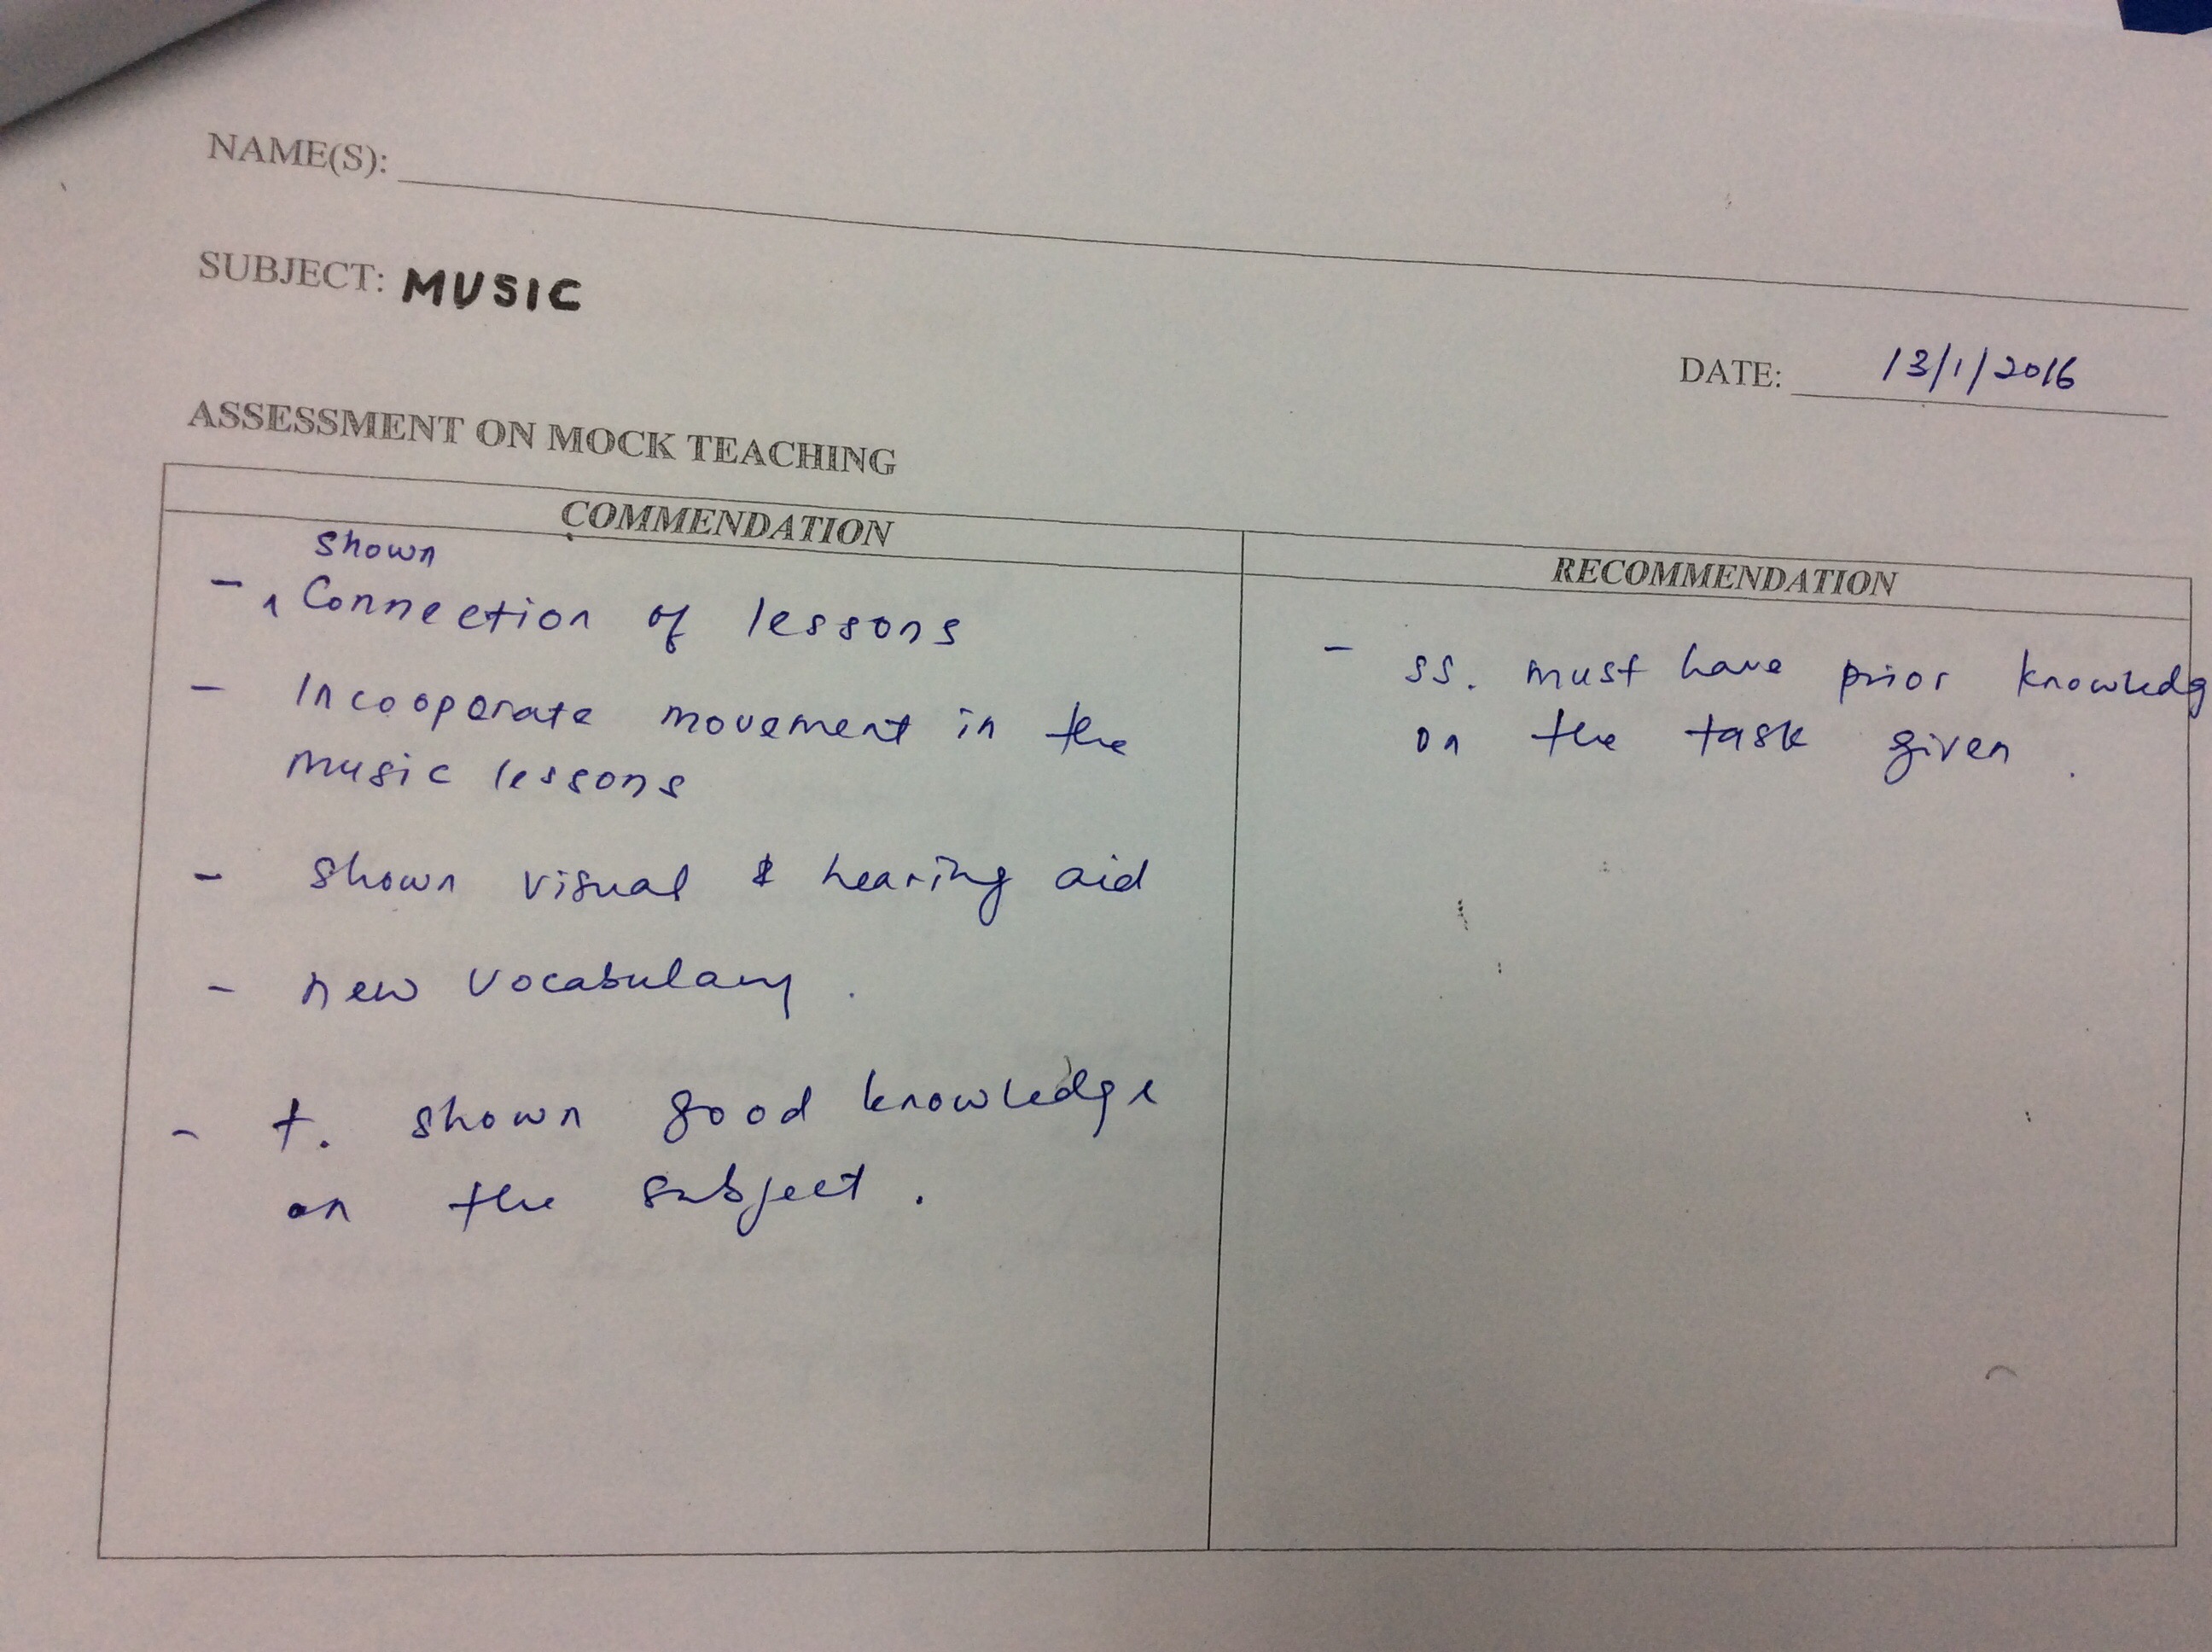 NAME(S):
SUBJECT: MUSIC
DATE: 13/1/2016
ASSESSMENT ON MOCK TEACHING
COMMENDATION
RECOMMENDATION
shown
- ‸ Connection of lessons
- Incooperate movement in the
music lessons
- shown visual & hearing aid
- new vocabulary.
- t. shown good knowledge
on the subject.
- ss. must have prior knowledg
on the task given.